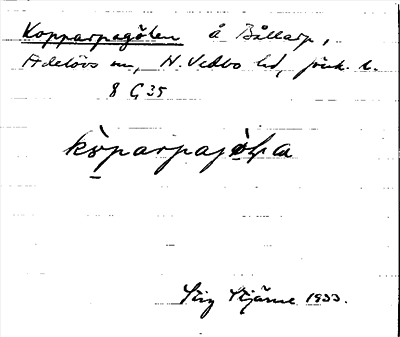 Kopparpagölen å Bållarp,
Adelövs sn, N. Vedbo hd, jönk. l.
8 G 35
köparpajöḷa
Stig Stjärne 1933.